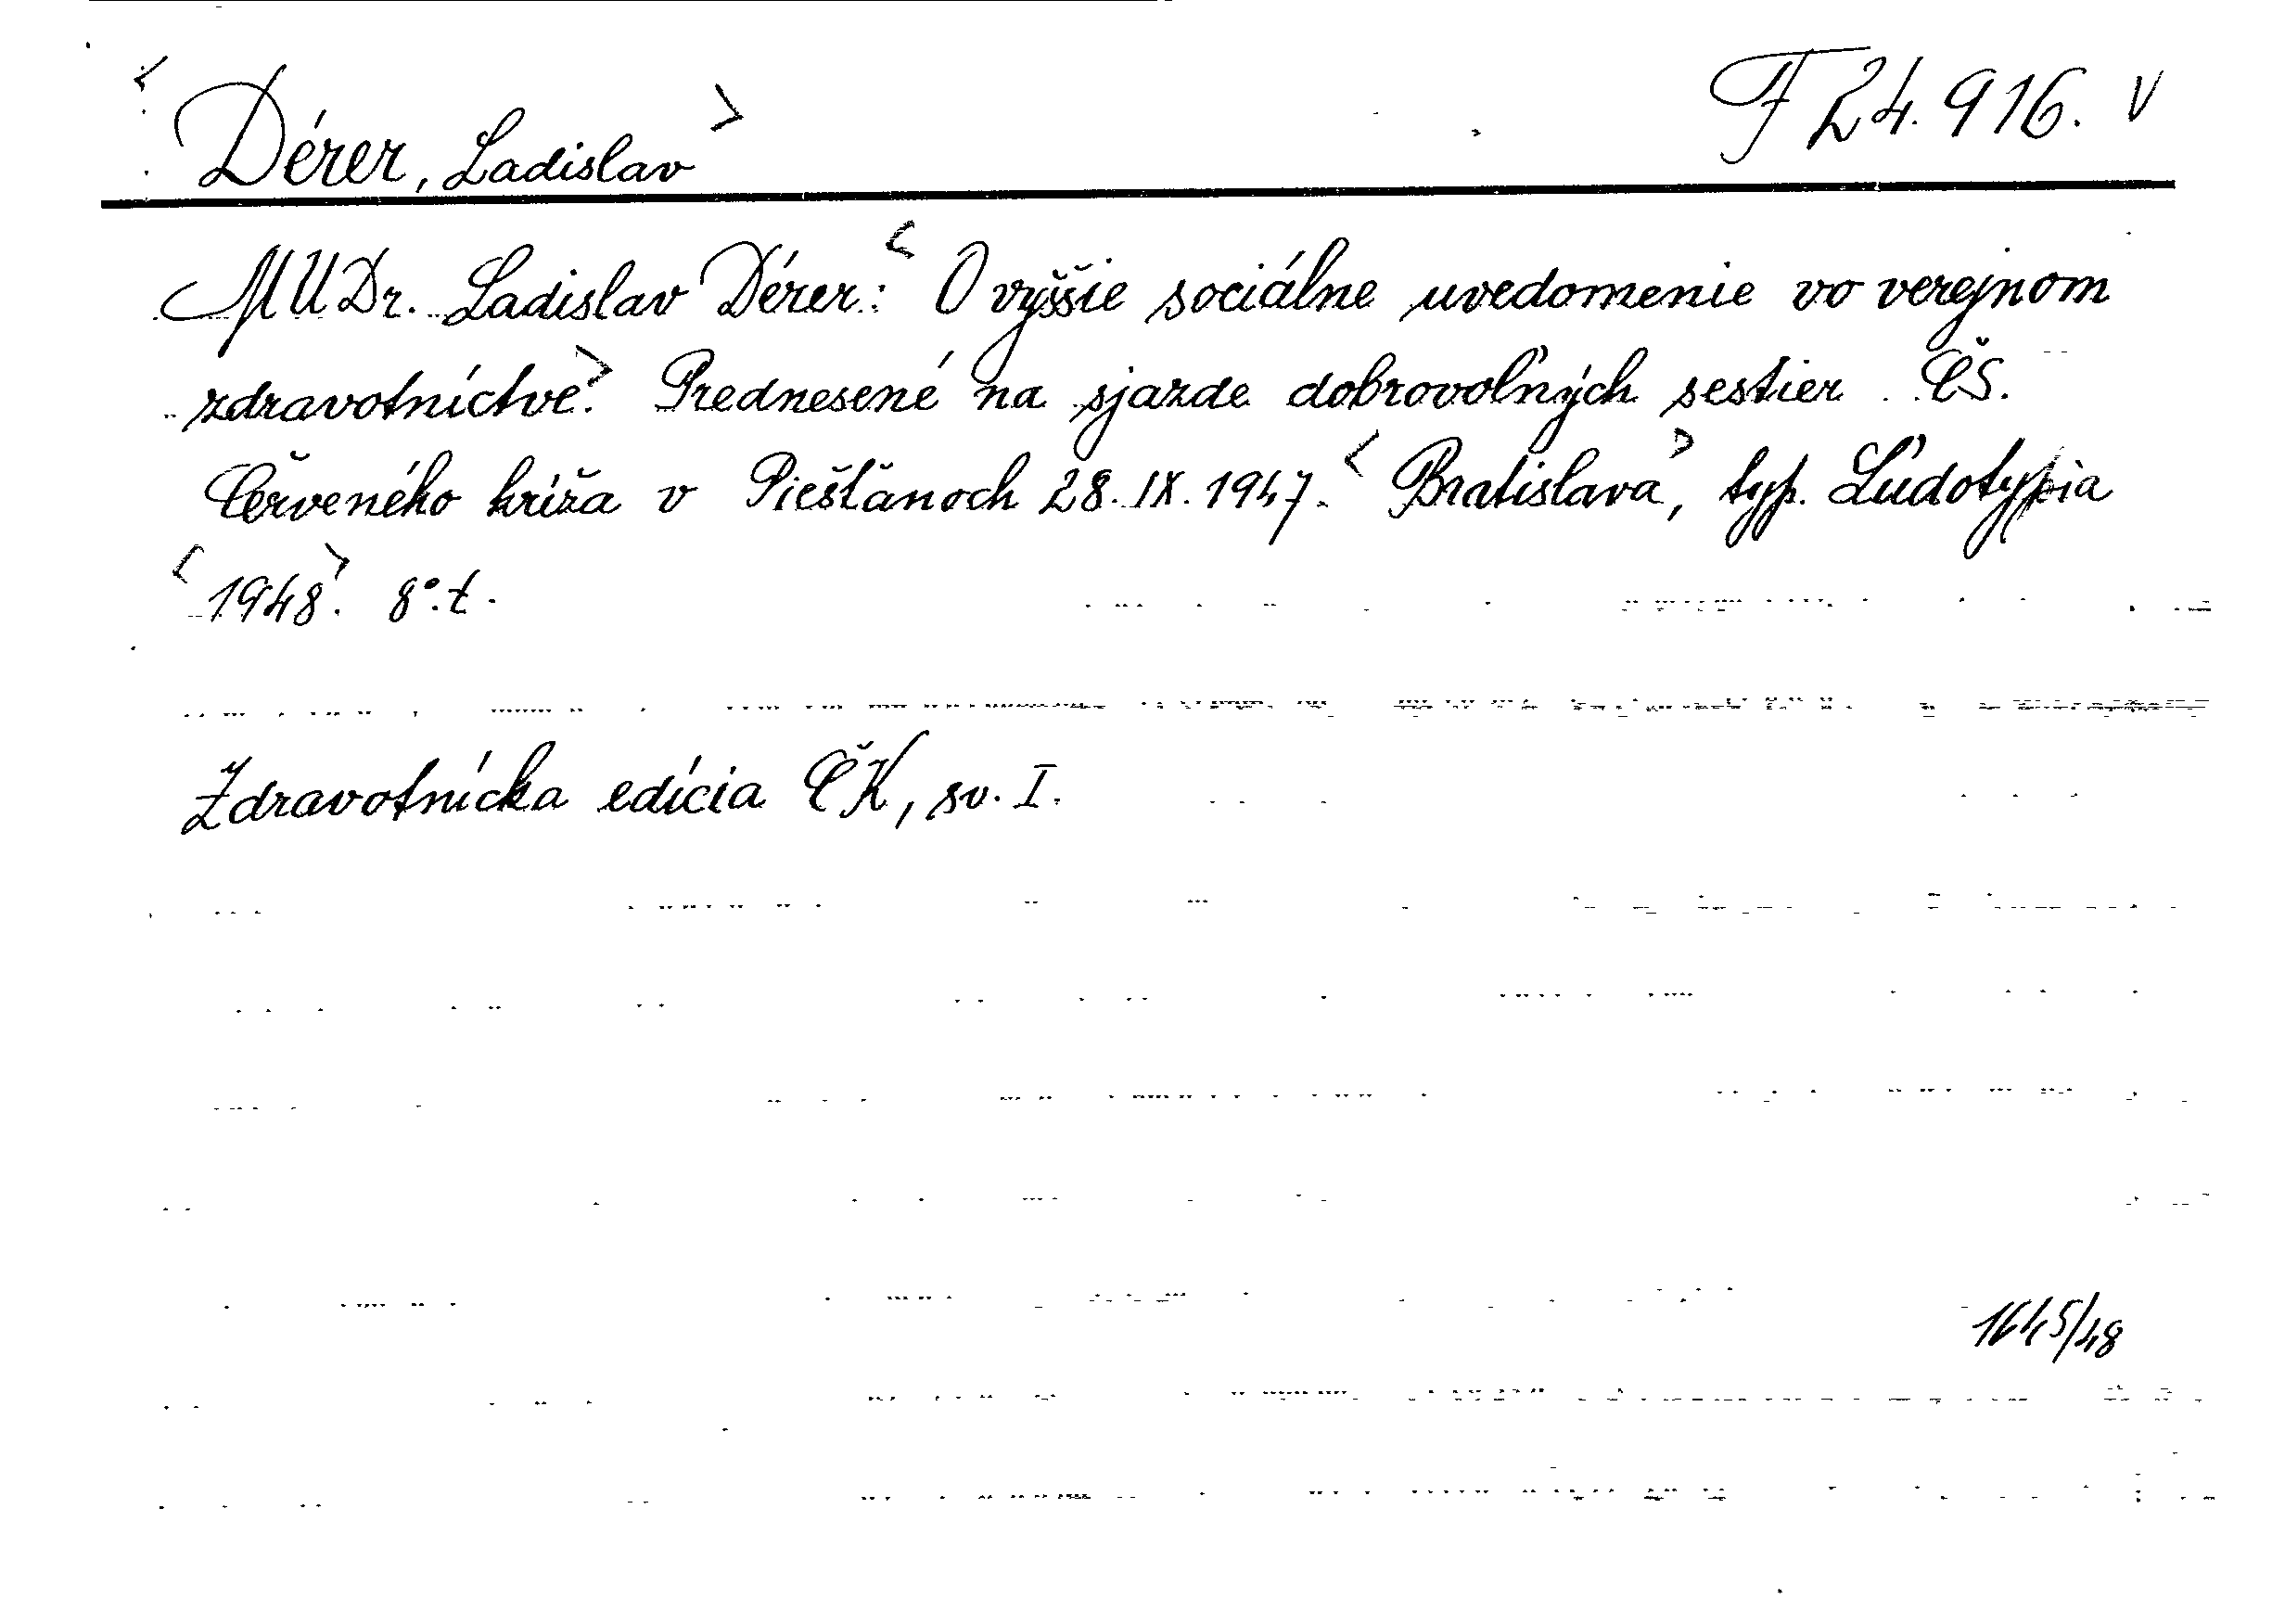 <Dérer, Ladislav> F 24.916. V
MUDr. Ladislav Dérer: <O vyššie sociálne uvedomenie vo verejnom
zdravotníctve>. Prednesené na sjazde dobrovoľných sestier ČS.
Červeného kríža v Piešťanoch 28.IX.1947. <Bratislava>, typ. Ľudotypia
<1948>. 8°. t.
Zdravotnícka edícia ČK, sv. I.
1645/48